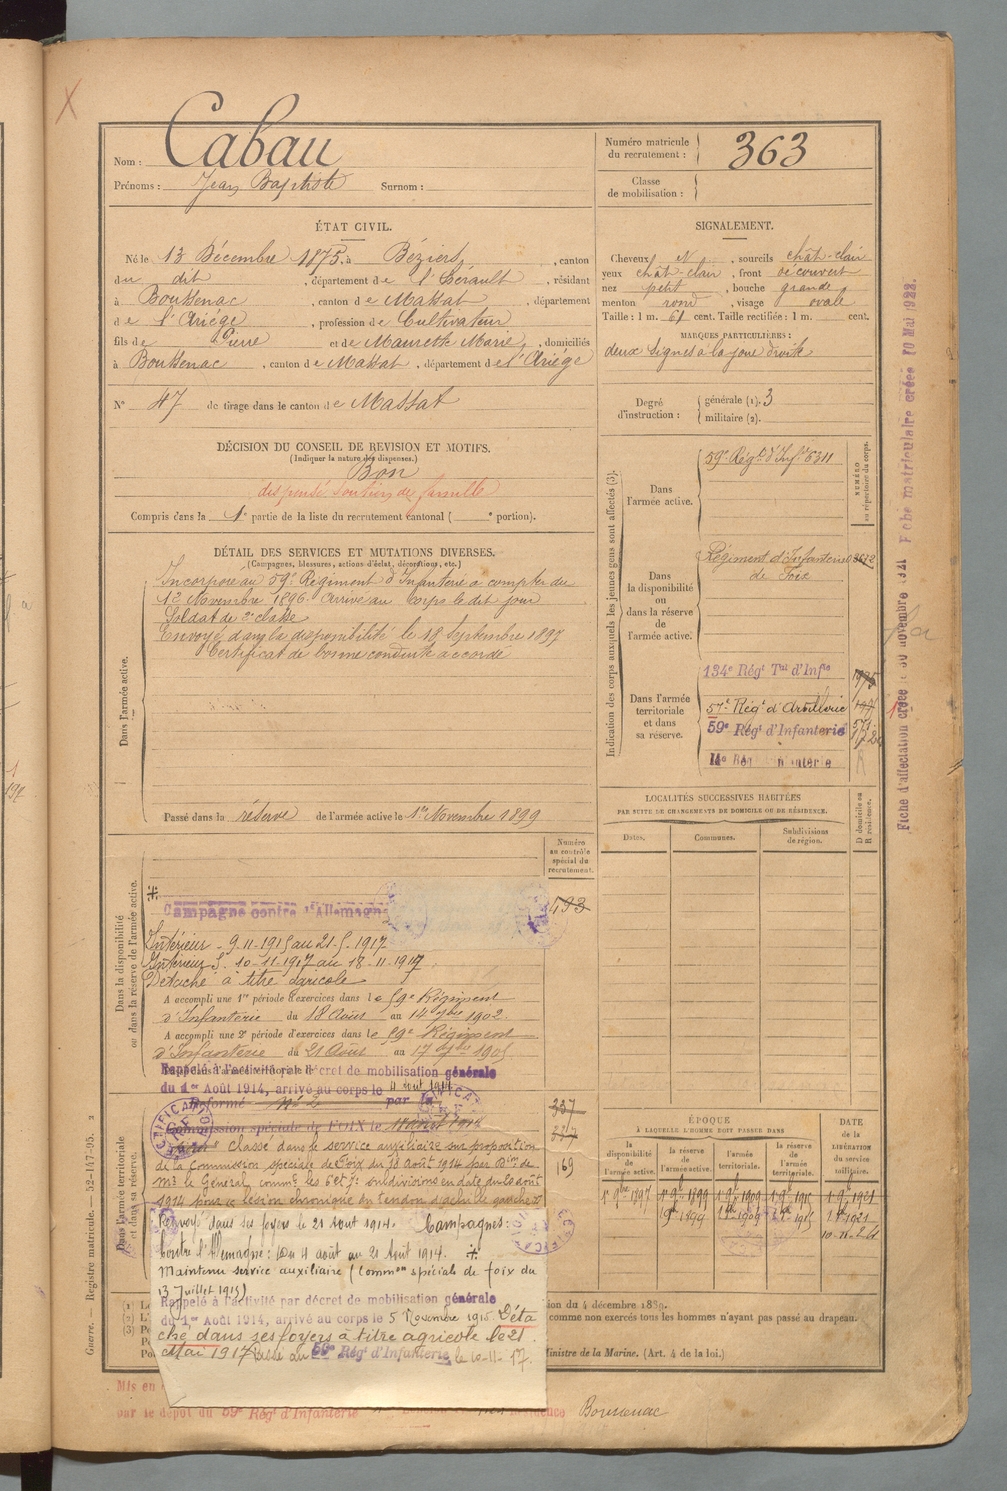 Nom : Cabau
Prénoms : Jean Baptiste Surnom :
Numéro matricule du recrutement : 363
Classe de mobilisation :
ÉTAT CIVIL.
Né le 13 Décembre 1875, à Béziers, canton
du dit, département de l'Hérault, résidant
à Boussenac, canton de Massat, département
de l'Ariège, profession de Cultivateur
fils de Pierre et de Maurette Marie, domiciliés
à Boussenac, canton de Massat, département de l'Ariège
N° 47 de tirage dans le canton de Massat
SIGNALEMENT.
Cheveux , sourcils chât-clair
yeux chât-clair, front découvert
nez petit, bouche grande
menton rond, visage ovale
Taille : 1 m. 61 cent. Taille rectifiée : 1 m. cent.
MARQUES PARTICULIÈRES :
deux signes à la joue droite
Degré d'instruction :
générale (1). 3
militaire (2).
DÉCISION DU CONSEIL DE REVISION ET MOTIFS.
(Indiquer la nature des dispenses.)
Bon
dispensé soutien de famille
Compris dans la 1e partie de la liste du recrutement cantonal ( e portion).
DÉTAIL DES SERVICES ET MUTATIONS DIVERSES.
(Campagnes, blessures, actions d'éclat, décorations, etc.)
Dans l'armée active.
Incorporé au 59e Régiment d'Infanterie à compter du
12 Novembre 1896. Arrivé au corps le dit jour
Soldat de 2e classe
Envoyé dans la disponibilité le 18 Septembre 1897
Certificat de bonne conduite accordé
Passé dans la réserve de l'armée active le 1er Novembre 1899
Indication des corps auxquels les jeunes gens sont affectés (3).
NUMÉRO au répertoire du corps.
Dans l'armée active.
59e Régt d'Infie 6311
Dans la disponibilité ou dans la réserve de l'armée active.
Régiment d'Infanterie
de Foix
Dans l'armée territoriale et dans sa réserve.
134e Régt Tal d'Infie
57e Régt d'Artillerie
59e Régt d'Infanterie
14e Rég d'Infanterie
Fiche d'affectation créée le 30 novembre 1921 Fiche matriculaire créée 10 Mai 1922.
LOCALITÉS SUCCESSIVES HABITÉES
PAR SUITE DE CHANGEMENTS DE DOMICILE OU DE RÉSIDENCE.
Dates.
Communes.
Subdivisions de région.
D domicile ou R résidence.
Numéro au contrôle spécial du recrutement.
493
Dans la disponibilité ou dans la réserve de l'armée active.
Campagne contre l'Allemagne
Intérieur - 9-11-1915 au 21-5-1917
Intérieur S. 10-11-1917 au 18-11-1917
Détaché à titre agricole
A accompli une 1re période d'exercices dans le 59e Régiment
d'Infanterie du 18 Août au 14 7bre 1902.
A accompli une 2e période d'exercices dans le 59e Régiment
d'Infanterie du 21 Août au 17 7bre 1905
Rappelé à l'activité par décret de mobilisation générale
du 1er Août 1914, arrivé au corps le 4 aout 1914
Réformé N° 2 par la
Commission spéciale de FOIX le
Dans l'armée territoriale et dans sa réserve.
337
337
169
Classé dans le service auxiliaire sur proposition
de la Commission spéciale de Foix du 18 août 1914 par Don de
Mr le Général commt les 6e et 7e subdivisions en date du 20 août
1914 pour lésion chronique du tendon d'achille gauche
Renvoyé dans ses foyers le 21 Aout 1914. Campagnes :
Contre l'Allemagne : Du 4 août au 21 Août 1914.
Maintenu service auxiliaire (Common spéciale de Foix du
13 Juillet 1915)
Rappelé à l'activité par décret de mobilisation générale
du 1er Août 1914, arrivé au corps le 5 Novembre 1915 Déta
ché dans ses foyers à titre agricole le 21
Mai 1917 Passé au 59e Régt d'Infanterie le 10-11-17.
ÉPOQUE
À LAQUELLE L'HOMME DOIT PASSER DANS
la disponibilité de l'armée active.
la réserve de l'armée active.
l'armée territoriale.
la réserve de l'armée territoriale.
DATE de la LIBÉRATION du service militaire.
1er 9bre 1897 1er 9b 1899 1er 9b 1909 1er 9b 1915 1er 9b 1921
10-11-26
ion du 4 décembre 1889.
comme non exercés tous les hommes n'ayant pas passé au drapeau.
Ministre de la Marine. (Art. 4 de la loi.)
Mis en
par le dépôt du 59e Régt d'Infanterie
Boussenac
Guerre. — Registre matricule. — 52-147-95.